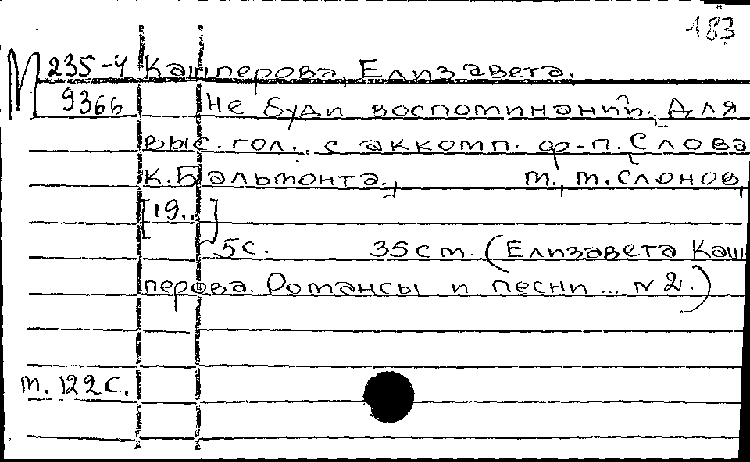 183
М 235-4 Кашперова, Елизавета.
9366 Не буди воспоминаний. Для
выс. гол. с аккомп. ф-п. Слова
К. Бальмонта. м., м. Слонов,
[19..]
5 с. 35 см. (Елизавета Каш
перова Романсы и песни... № 2.)
т. 122 с.